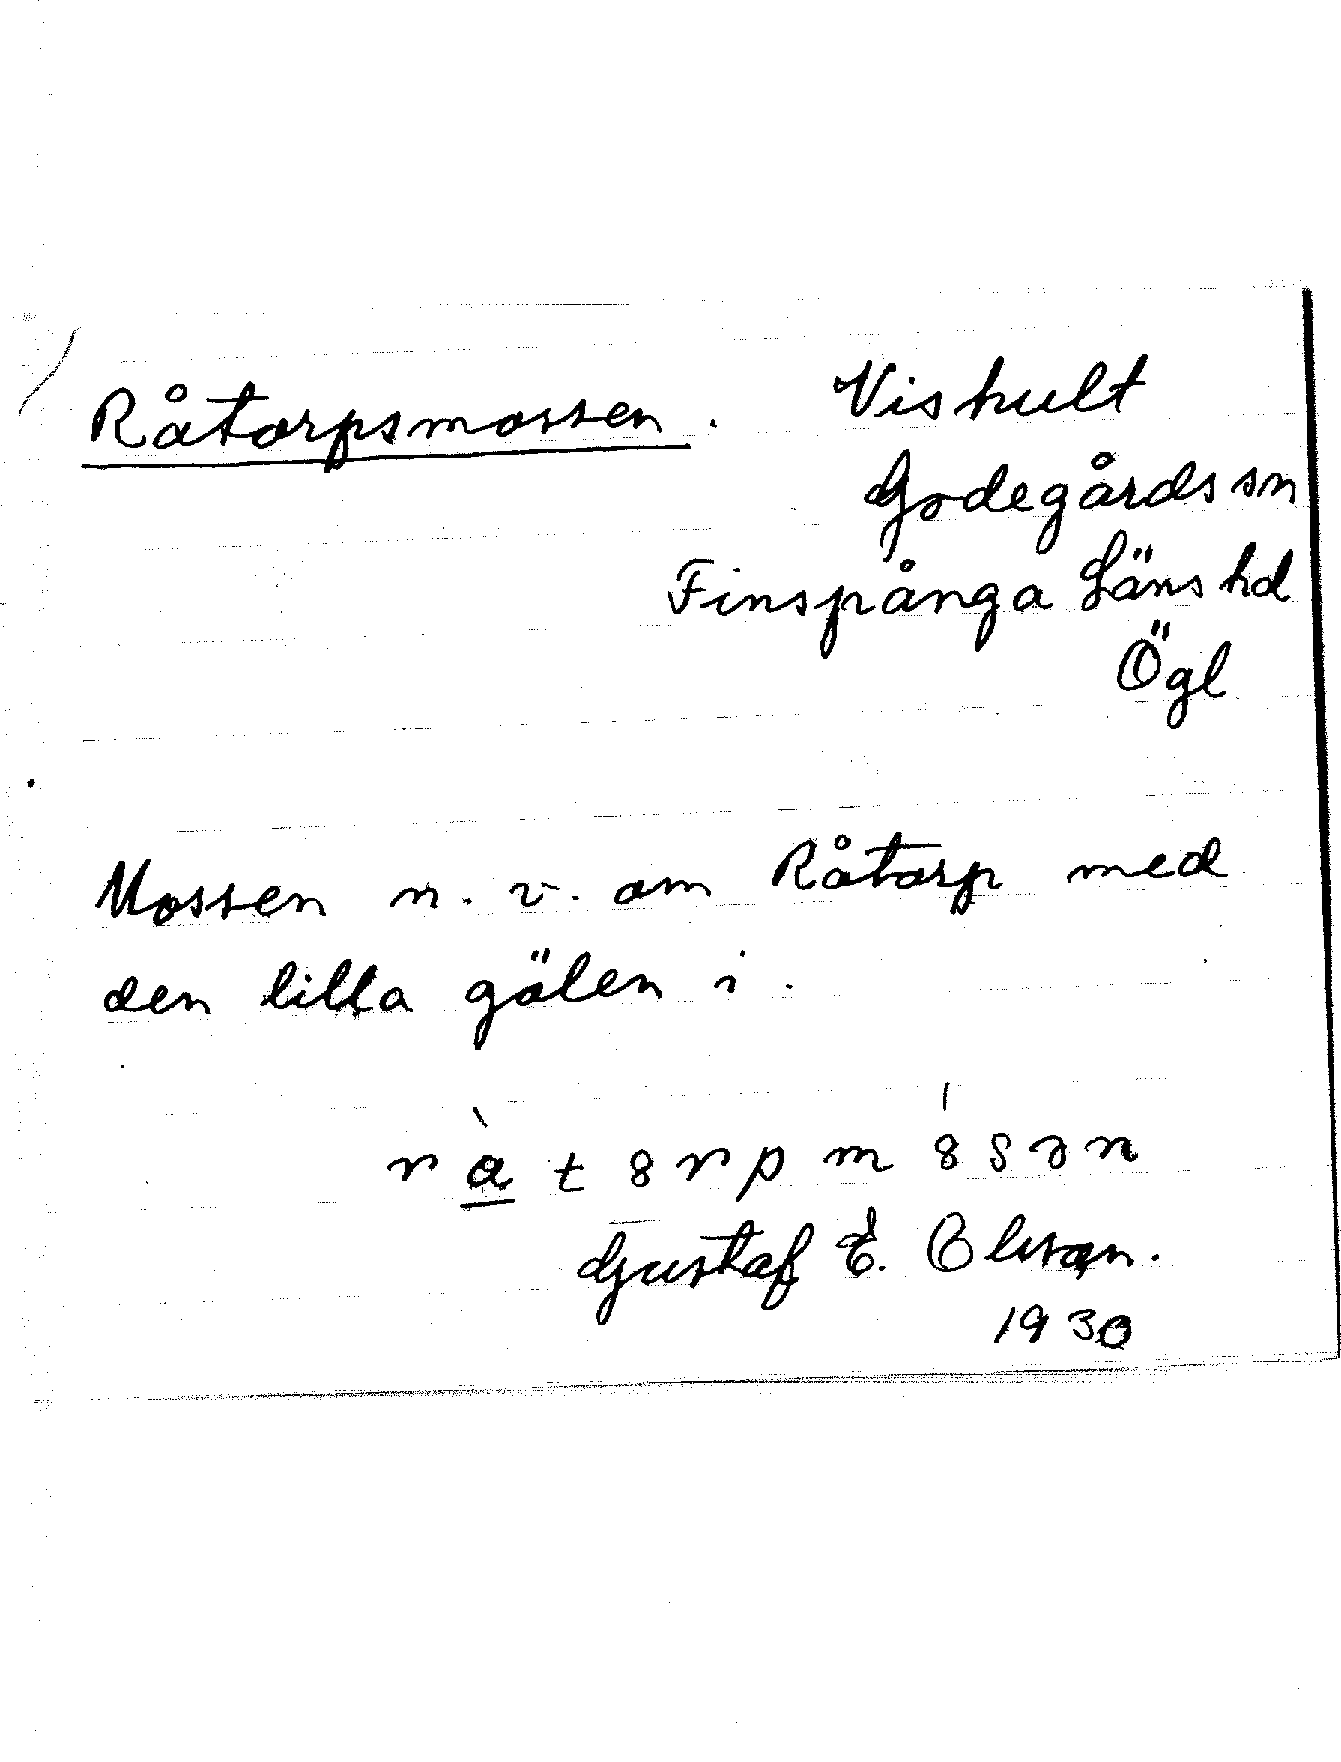 Råtorpsmossen. Vishult
Godegårds sn
Finspånga Läns hd
Ögl
Mossen n. v. om Råtorp med
den lilla gölen i.
Gustaf E. Olson.
1930